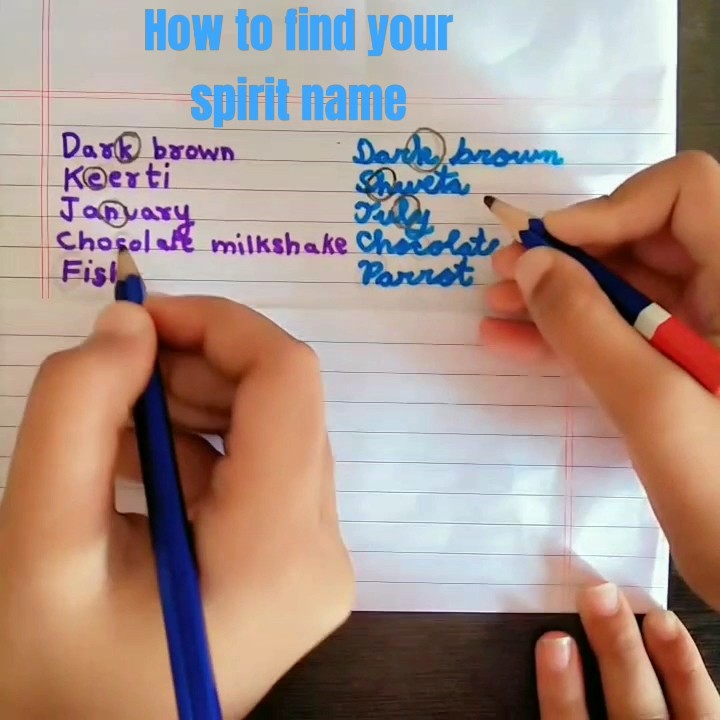 How to find your
spirit name
Dark brown
Keerti
January
Chocolate milkshake
Fish
Dark brown
Shweta
July
Chocolate
Parrot